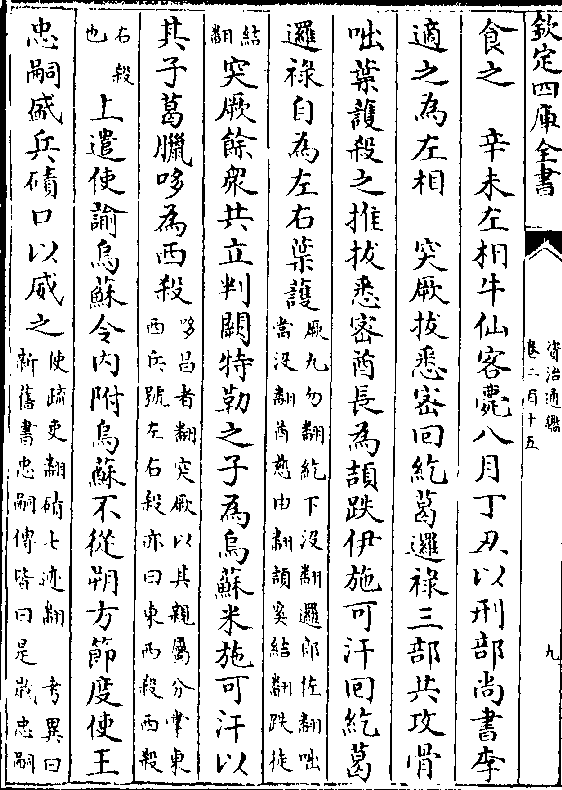 欽定四庫全書
資治通鑑
卷二百十五
九
食之　辛未左相牛仙客薨八月丁丑以刑部尚書李
適之為左相　突厥拔悉密回紇葛邏祿三部共攻骨
咄葉護殺之推拔悉密酋長為頡跌伊施可汗回紇葛
邏祿自為左右葉護
厥九勿翻紇下没翻邏郎佐翻咄
當没翻酋慈由翻頡奚結翻跌徒
結翻
突厥餘衆共立判闕特勒之子為烏蘇米施可汗以
其子葛臘哆為西殺
哆昌者翻突厥以其親屬分掌東
西兵號左右殺亦曰東西殺西殺
右殺也
上遣使諭烏蘇令内附烏蘇不從朔方節度使王
忠嗣盛兵磧口以威之
使疏吏翻磧七迹翻　考異曰
新舊書忠嗣傳皆曰是歲忠嗣